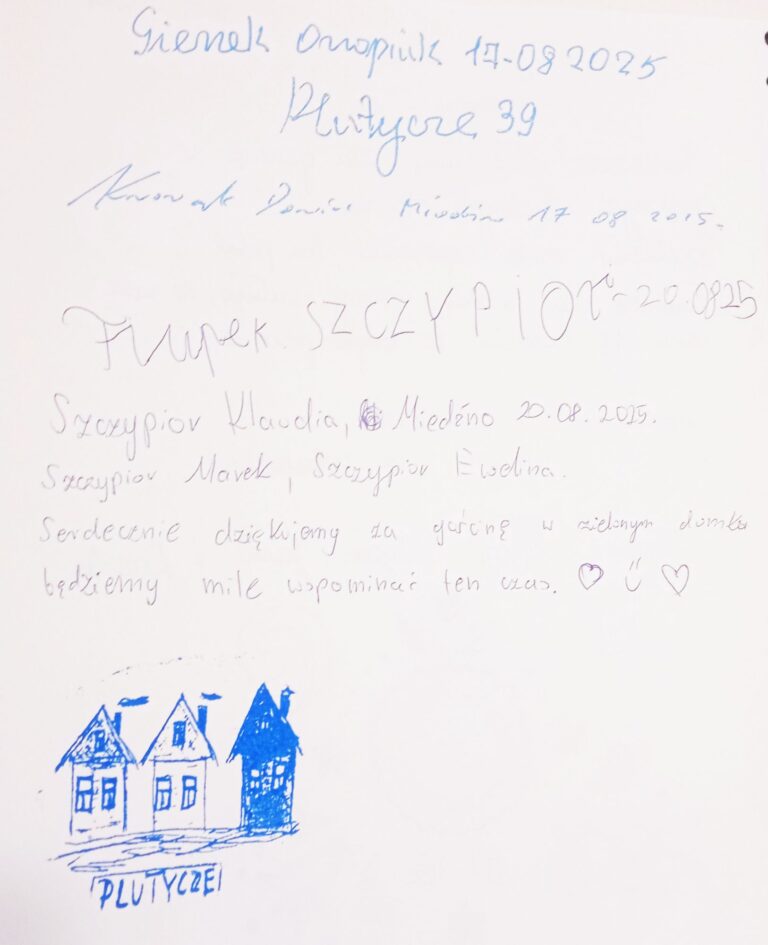 Gienek Onopiuk 17-08 2025
Plutycze 39
17 08 2025.
SZCZYPIOR - 20.0825
Szczypior Klaudia, Miedźno 20.08.2025.
Szczypior Marek, Szczypior Ewelina.
Serdecznie dziękujemy za gościnę w zielonym domku
będziemy mile wspominać ten czas.
PLUTYCZE